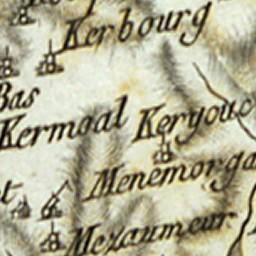 Kerbourg
Bas
Kermoal Keryouc
Menemorga
Mezaumeur